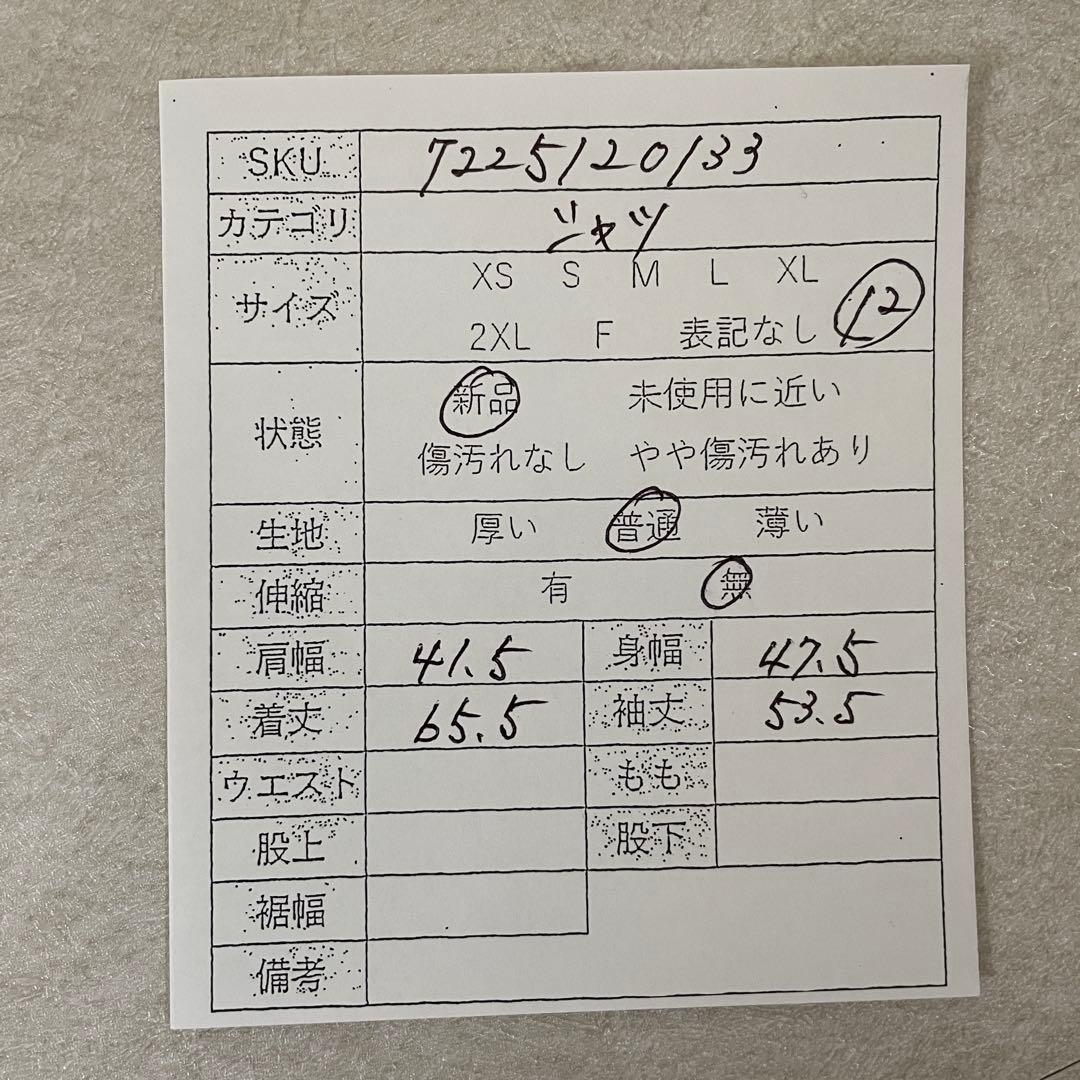 SKU 7225120133
カテゴリ シャツ
サイズ XS S M L XL
2XL F 表記なし 12
状態 新品 未使用に近い
傷汚れなし やや傷汚れあり
生地 厚い 普通 薄い
伸縮 有 無
肩幅 41.5 身幅 47.5
着丈 65.5 袖丈 53.5
ウエスト もも
股上 股下
裾幅
備考